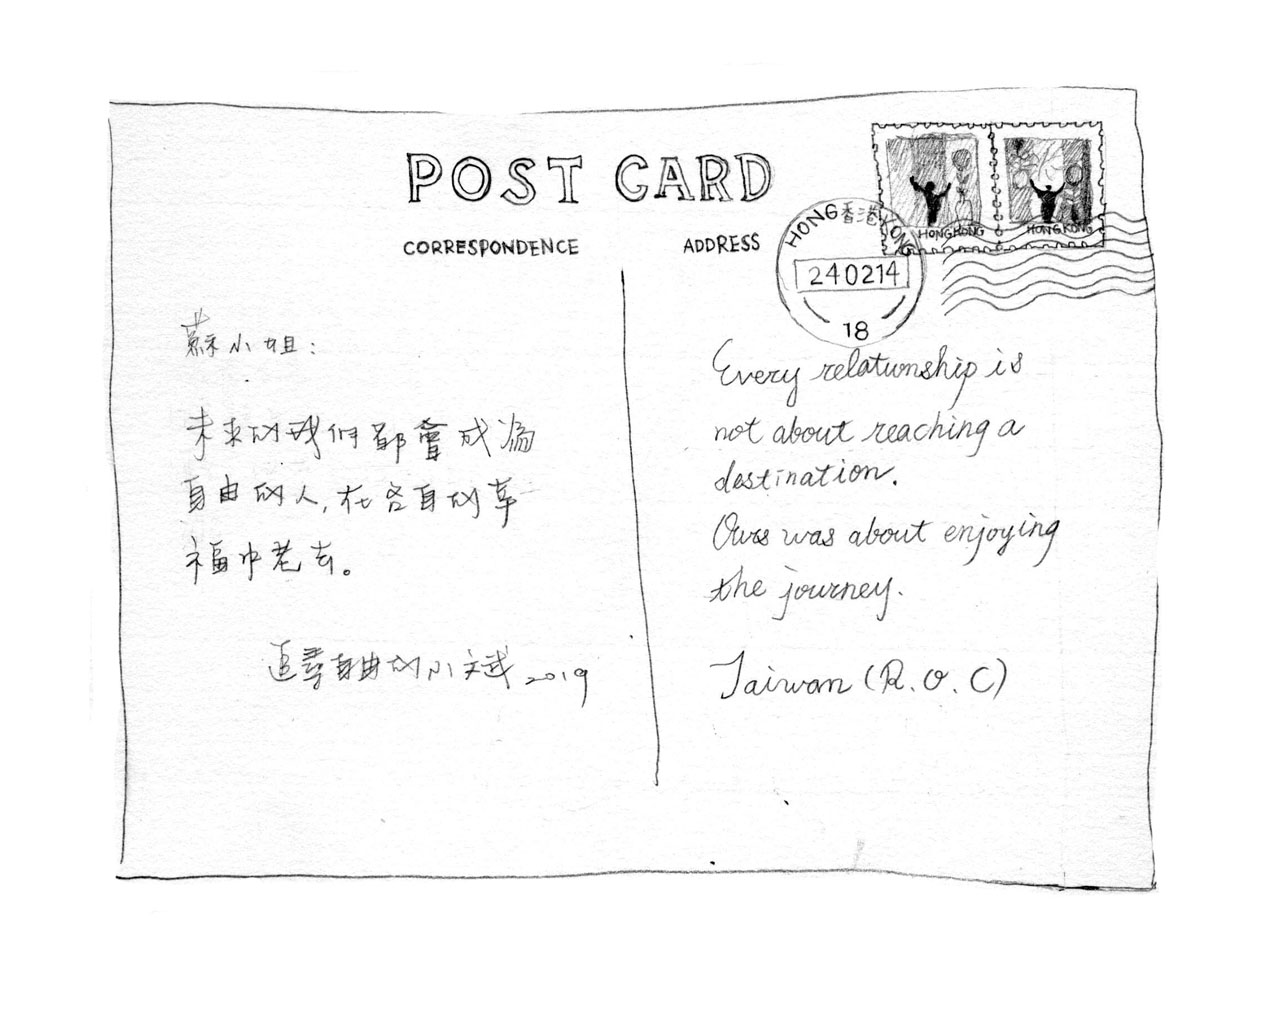 POST CARD
CORRESPONDENCE
ADDRESS
HONG 香港 KONG
240214
18
HONG KONG
HONG KONG
蘇小姐：
未來的我們都會成為
自由的人，在各自的幸
福中老去。
追尋自由的小斌 2019
Every relationship is
not about reaching a
destination.
Ours was about enjoying
the journey.
Taiwan (R.O.C)